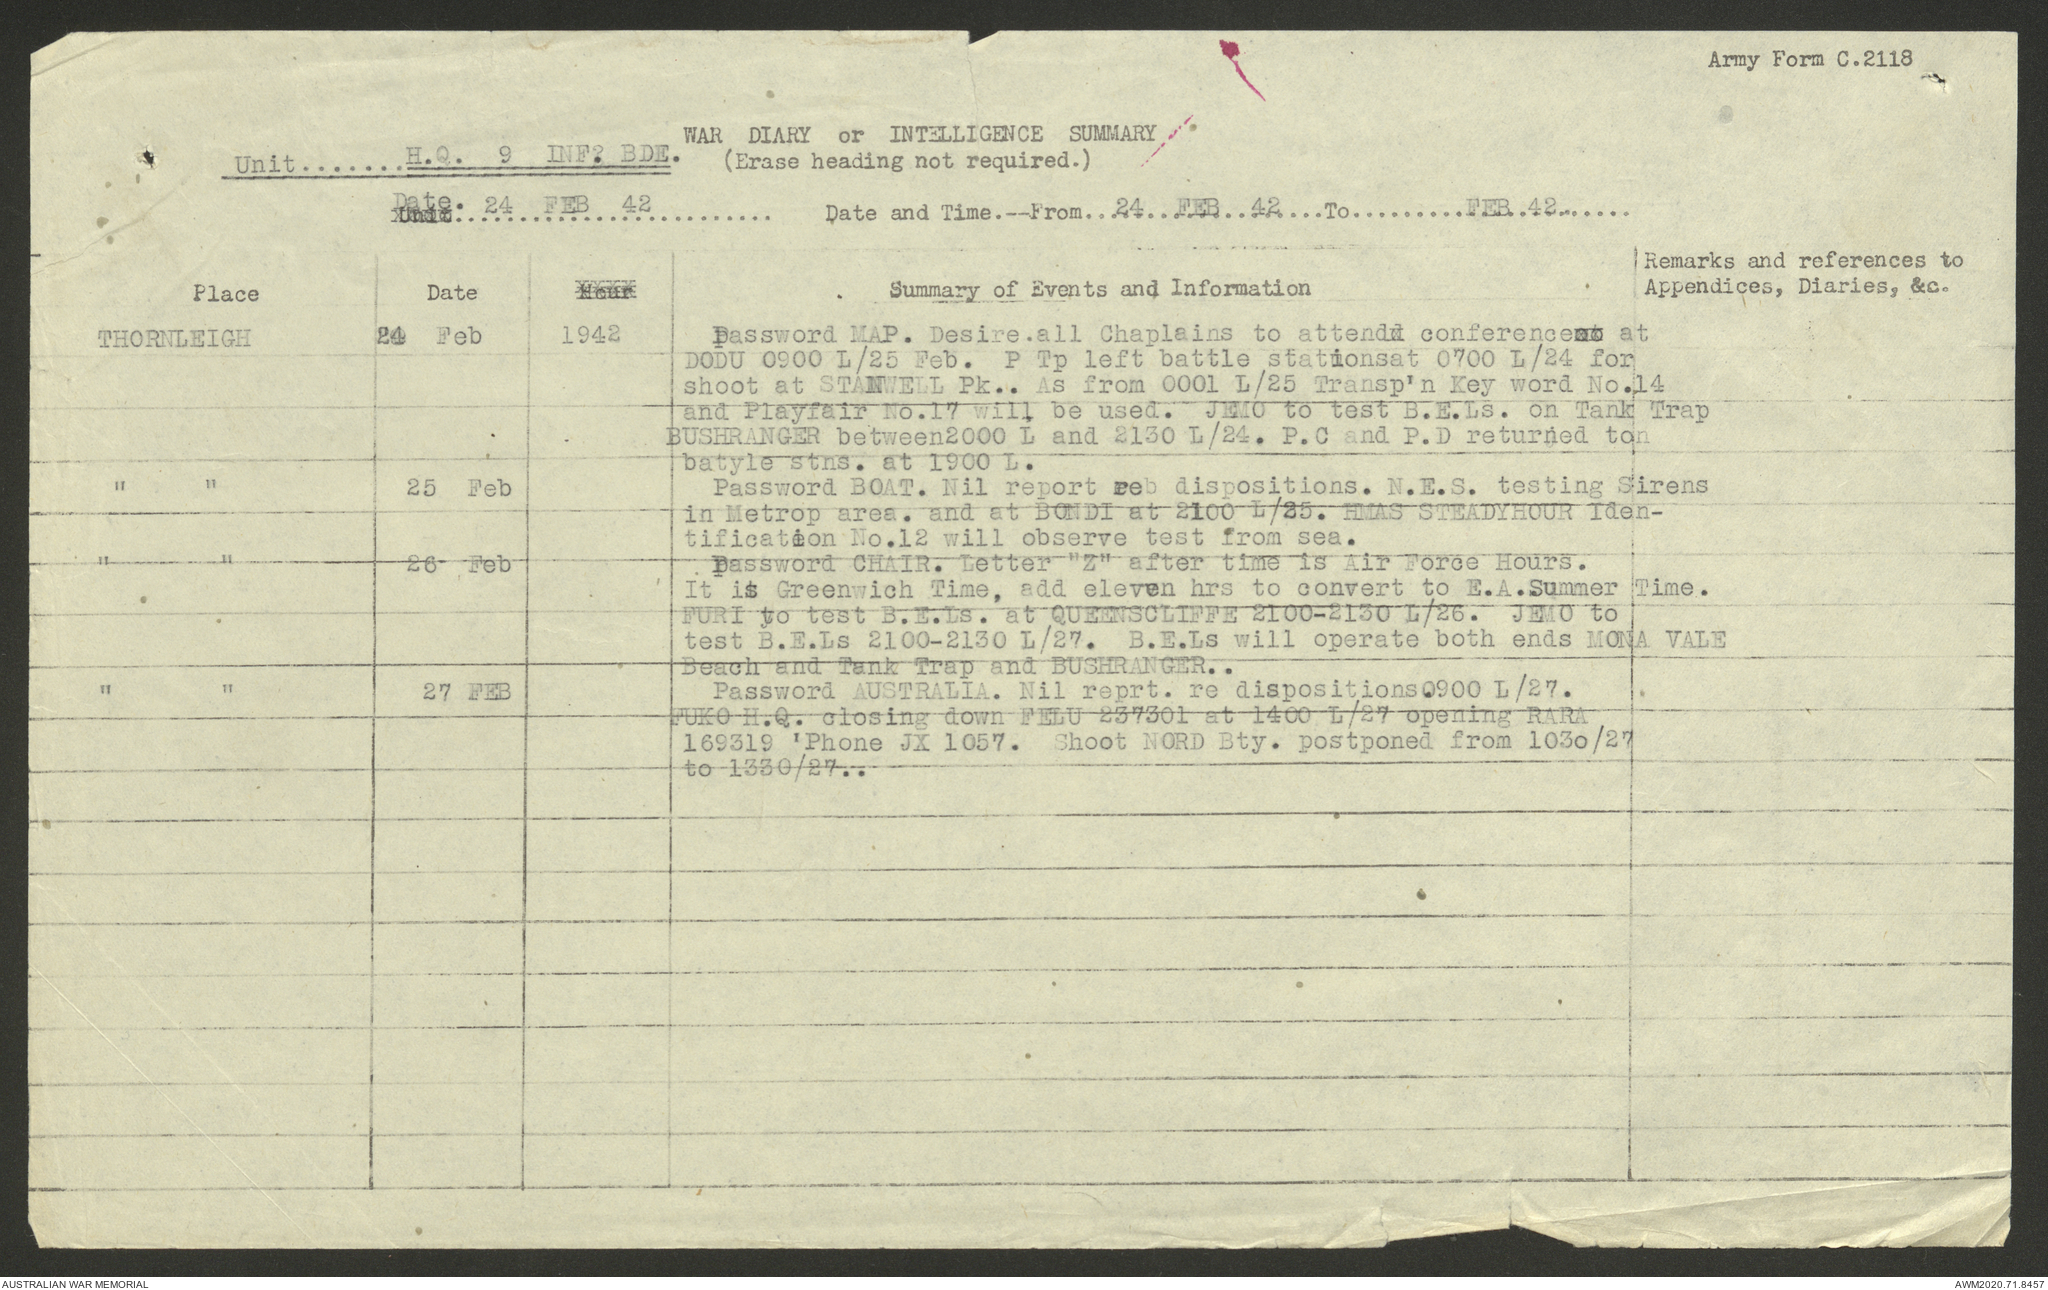 Army Form C.2118
WAR DIARY or INTELLIGENCE SUMMARY
Unit.......H.Q. 9 INF? BDE. (Erase heading not required.)
Date. 24 FEB 42 Date and Time.--From...24...FEB...42....To.........FEB.42......
Place Date Hour Summary of Events and Information Remarks and references to
Appendices, Diaries, &c.
THORNLEIGH 24 Feb 1942 Password MAP. Desire.all Chaplains to attend conference at
DODU 0900 L/25 Feb. P Tp left battle stationsat 0700 L/24 for
shoot at STANWELL Pk.. As from 0001 L/25 Transp'n Key word No.14
and Playfair No.17 will be used. JEMO to test B.E.Ls. on Tank Trap
BUSHRANGER between2000 L and 2130 L/24. P.C and P.D returned ton
batyle stns. at 1900 L.
" " 25 Feb Password BOAT. Nil report reb dispositions. N.E.S. testing Sirens
in Metrop area. and at BONDI at 2100 L/25. HMAS STEADYHOUR Iden-
tification No.12 will observe test from sea.
" " 26 Feb Password CHAIR. Letter "Z" after time is Air Force Hours.
It is Greenwich Time, add eleven hrs to convert to E.A.Summer Time.
FURI to test B.E.Ls. at QUEENSCLIFFE 2100-2130 L/26. JEMO to
test B.E.Ls 2100-2130 L/27. B.E.Ls will operate both ends MONA VALE
Beach and Tank Trap and BUSHRANGER..
" " 27 FEB Password AUSTRALIA. Nil reprt. re dispositions0900 L/27.
FUKO H.Q. closing down FELU 237301 at 1400 L/27 opening RARA
169319 'Phone JX 1057. Shoot NORD Bty. postponed from 1030/27
to 1330/27..
AUSTRALIAN WAR MEMORIAL AWM2020.71.8457